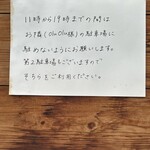 11時から14時までの間は
お隣(○○○○様)の駐車場に
駐めないようにお願いします。
第2駐車場もございますので
そちらをご利用ください。